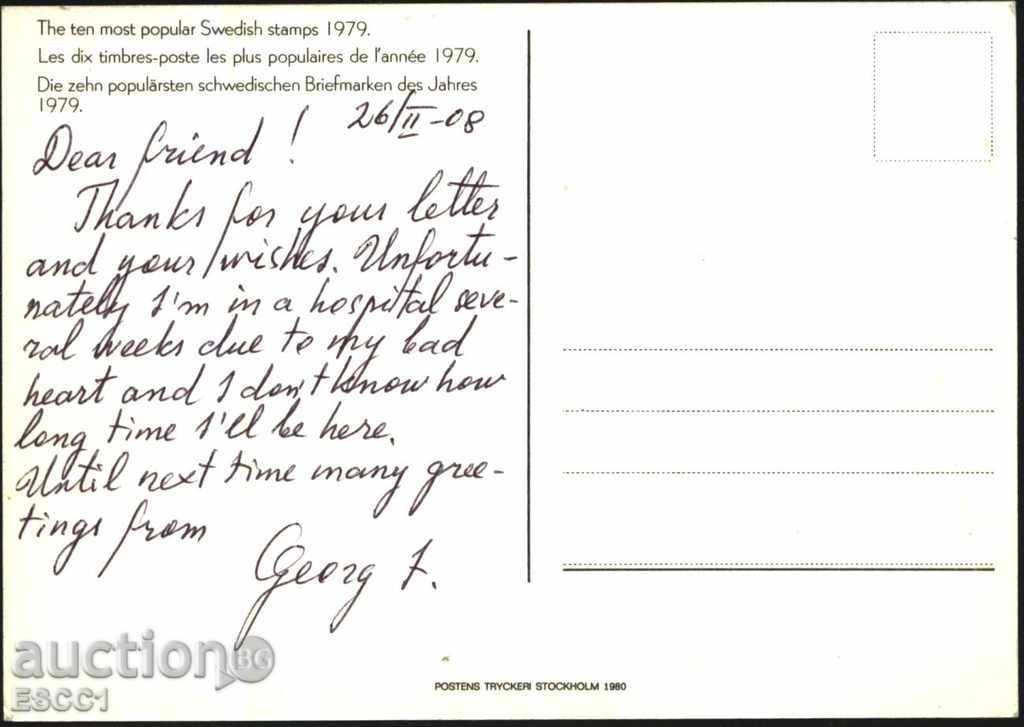 The ten most popular Swedish stamps 1979.
Les dix timbres-poste les plus populaires de l'année 1979.
Die zehn populärsten schwedischen Briefmarken des Jahres
1979.
26/II-08
Dear friend!
Thanks for your letter
and your wishes. Unfortu-
nately I'm in a hospital seve-
ral weeks due to my bad
heart and I don't know how
long time I'll be here.
Until next time many gree-
tings from
Georg F.
POSTENS TRYCKERI STOCKHOLM 1980
auction BG
ESCC1